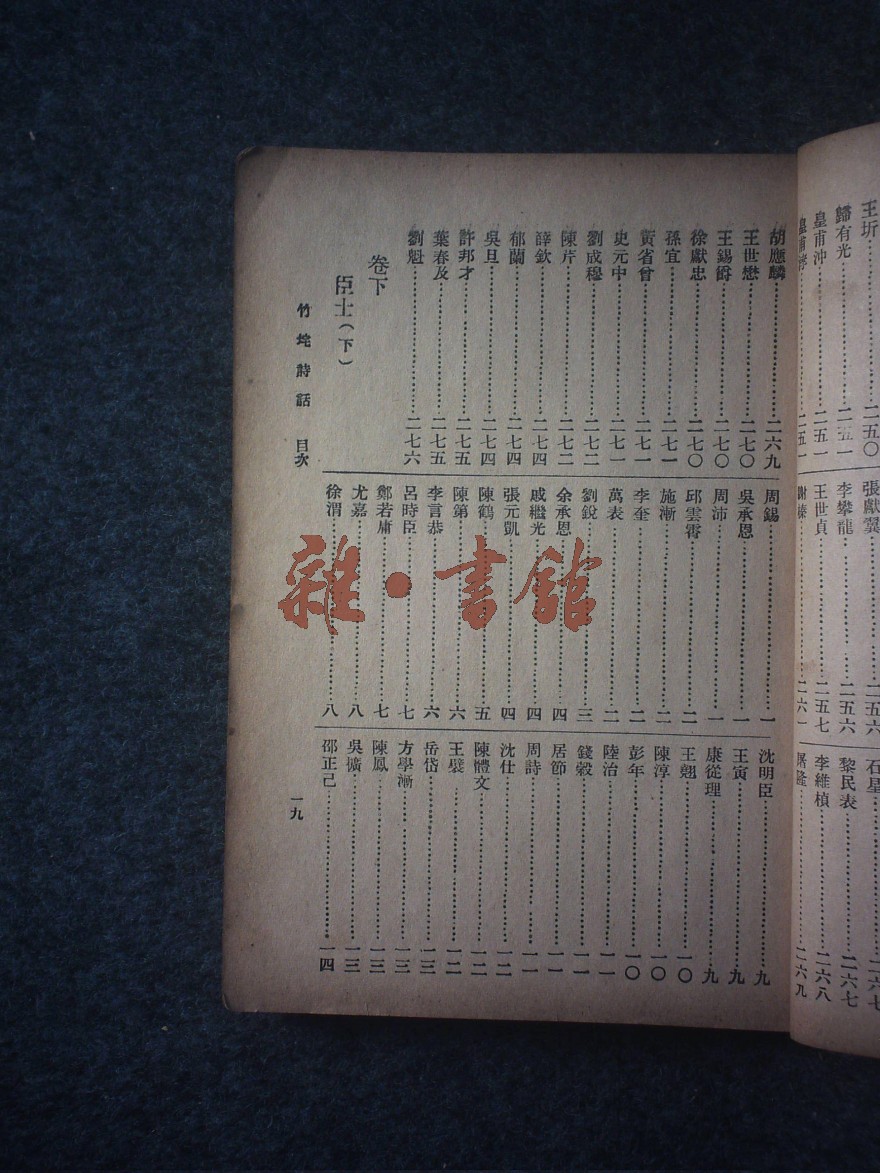 王圻……二五〇
歸有光……二五一
皇甫沖……二五一
張獻翼……二五六
李攀龍……二五六
王世貞……二五七
謝榛……二六一
石星……二六七
黎民表……二六七
李維楨……二六八
屠隆……二六九
胡應麟……二六九
王世懋……二七〇
王錫爵……二七〇
徐獻忠……二七〇
孫宜……二七一
黃省曾……二七一
史元中……二七一
劉成穆……二七二
陳芹……二七二
薛欽……二七四
郁蘭……二七四
吳旦……二七四
許邦才……二七五
葉春及……二七五
劉魁……二七六
卷下
臣士(下)
周錫……一
吳承恩……一
周沛……一
邱雲霄……二
施漸……二
李奎……二
萬表……二
劉銳……三
余承恩……四
戚繼光……四
張元凱……四
陳鶴……五
陳第……六
李言恭……六
呂時臣……七
鄭若庸……七
尤嘉……八
徐渭……八
沈明臣……九
王寅……九
康從理……九
王翹……一〇
陳淳……一〇
彭年……一〇
陸治……一一
錢穀……一一
居節……一一
周詩……一一
沈仕……一二
陳體文……一二
王襞……一二
岳岱……一三
方學漸……一三
陳鳳……一三
吳擴……一三
邵正己……一四
竹垞詩話 目次
一九
雜·書館